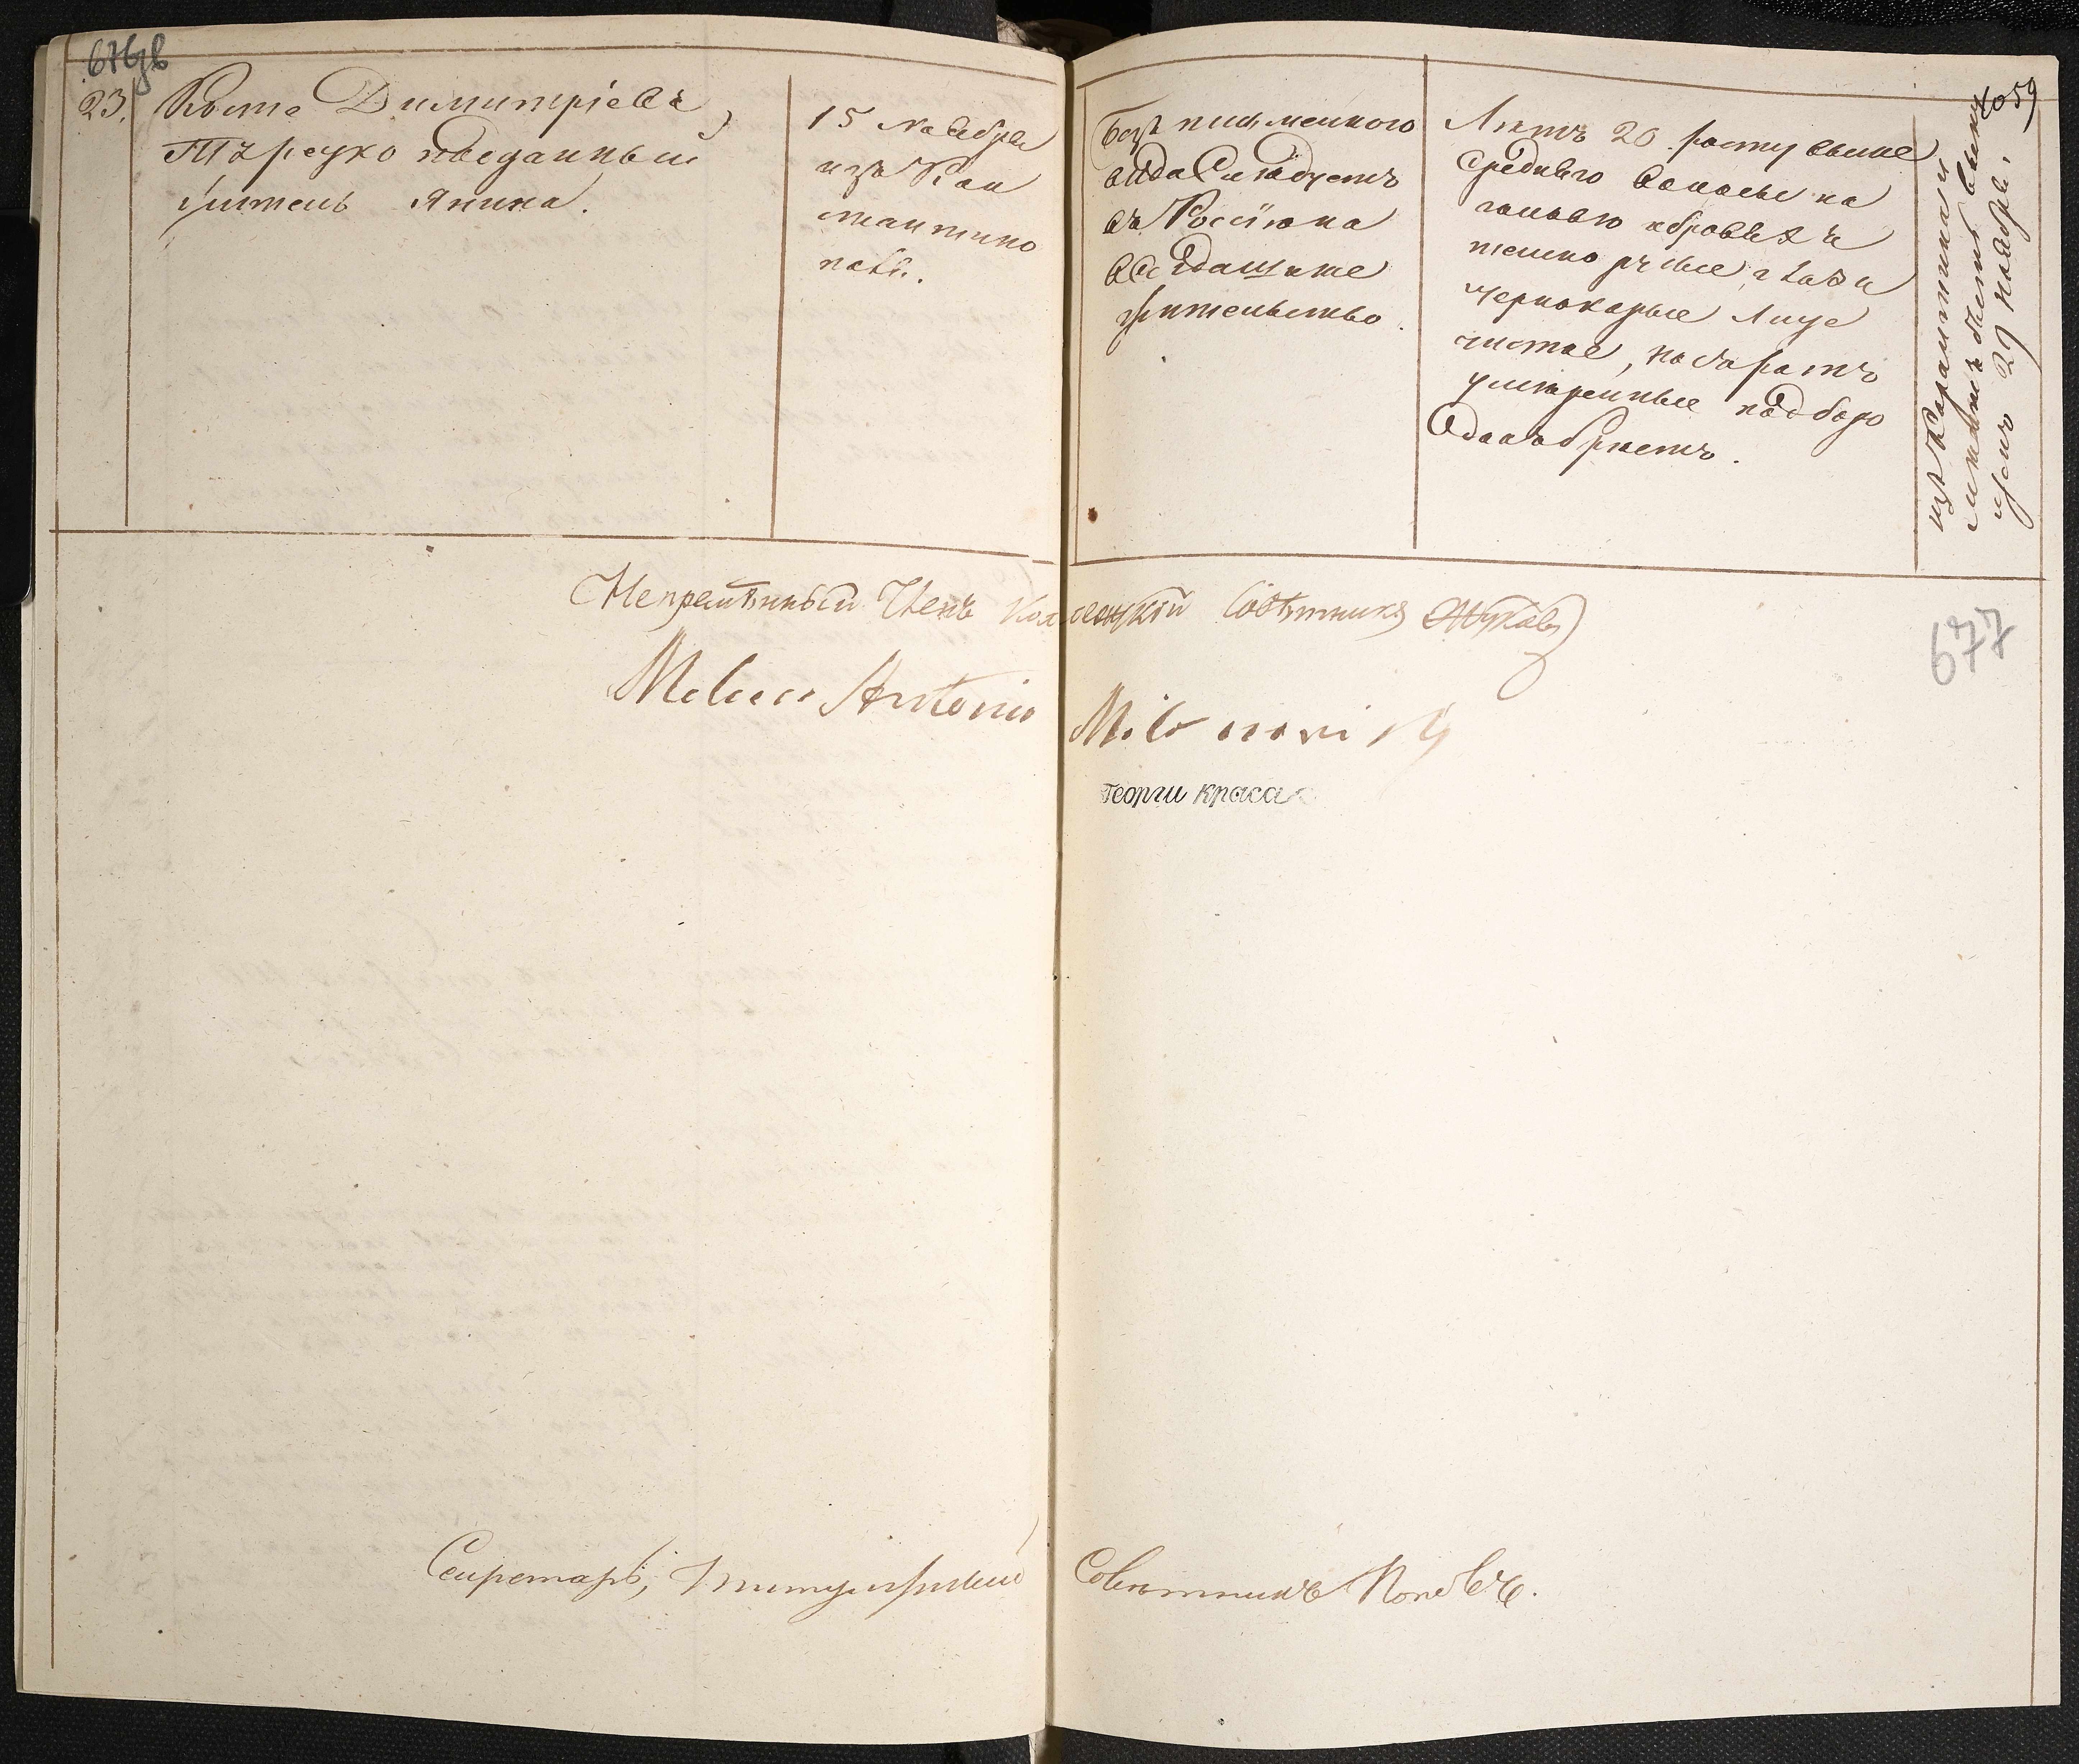 23.
Коста Димитріевъ,
Турецко подданный
житель Янина.
15 Ноября
изъ Кон
стантино
поля.
Безъ письменного
вида Слѣдуетъ
въ Россію на
всегдашнее
жительство.
Лѣтъ 20. росту выше
средняго волосы на
головѣ и бровяхъ
темно русые, глаза
чернокарые Лице
чистое, носъ и ротъ
умѣренные подборо
докъ обритъ.
изъ Карантина
29 Ноября.
1059
677
Непремѣнный Членъ Коллежскій Совѣтникъ Жуковъ
Antonio
георги краса
Секретарь, Титулярный Совѣтникъ Поповъ.